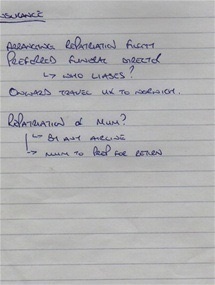 INSURANCE
ARRANGING REPATRIATION FLIGHT
PREFERRED FUNERAL DIRECTOR
↳ WHO LIASES?
ONWARD TRAVEL UK TO NORWICH.
REPATRIATION OF MUM?
↳ BY ANY AIRLINE
→ MUM TO PREP FOR RETURN